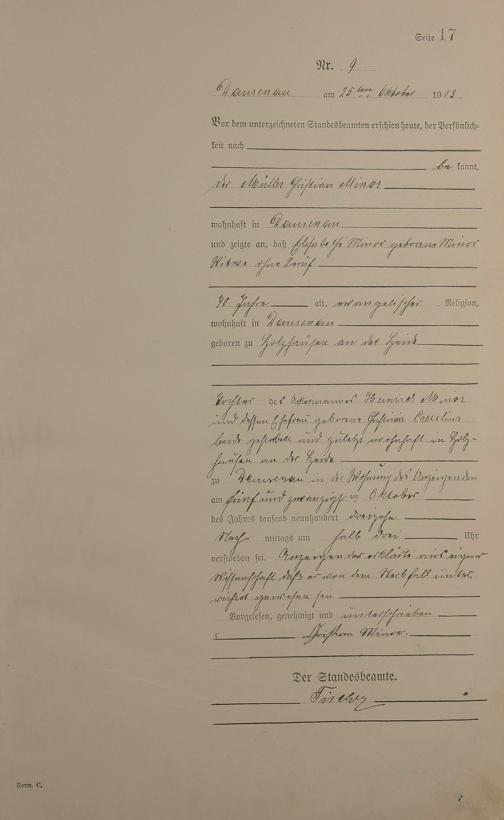 Seite 17
Nr. 9
Dausenau am 25ten Oktober 1913.
Vor dem unterzeichneten Standesbeamten erschien heute, der Persönlich-
keit nach
be kannt,
der Müller Christian Minor
wohnhaft in Dausenau
und zeigte an, daß Elisabethe Minor geborene Minor
Witwe ohne Beruf
70 Jahre alt, evangelischer Religion,
wohnhaft in Dausenau
geboren zu Holzhausen an der Heide
Tochter des Ackermannes Heinrich Minor
und dessen Ehefrau geborene
beide gestorben und zuletzt wohnhaft in Holz-
hausen an der Heide
zu Dausenau in der Wohnung des Anzeigenden
am fünf und zwanzigsten Oktober
des Jahres tausend neunhundert dreizehn
Nach mittags um halb drei Uhr
verstorben sei. Anzeigender erklärte aus eigner
Wissenschaft daß er von dem Sterbfall unter-
richtet gewesen sei
Vorgelesen, genehmigt und unterschrieben
Christian Minor.
Der Standesbeamte.
Form. C.